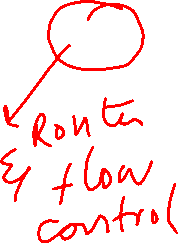 Router
& flow
control